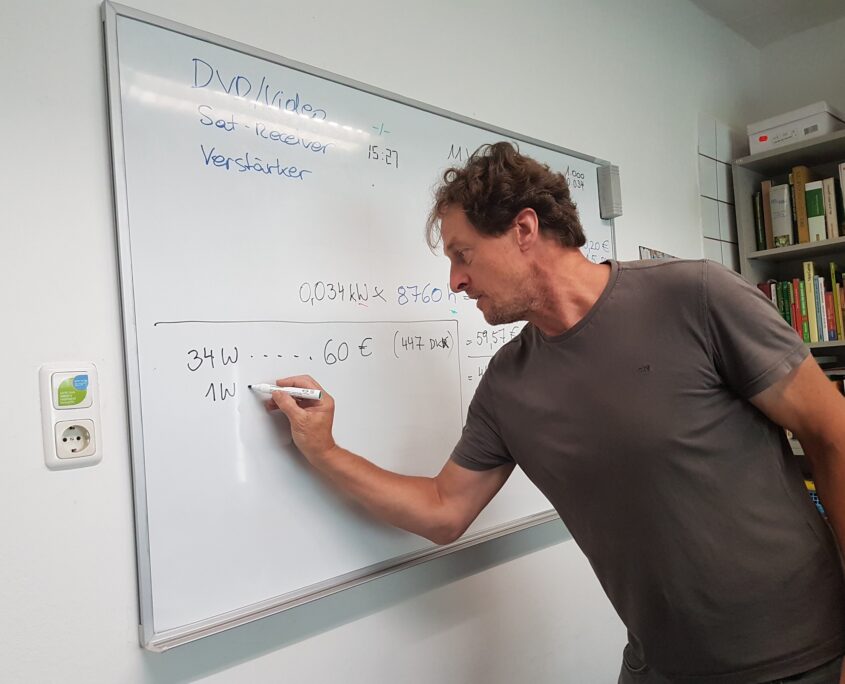 DVD/Video
Sat-Receiver -/-
Verstärker 15:27
1.000
0.034
0,20 €
0,034 kW x 8760 h =
34W ...... 60 € (447 DKK) = 59,57 €
1W =